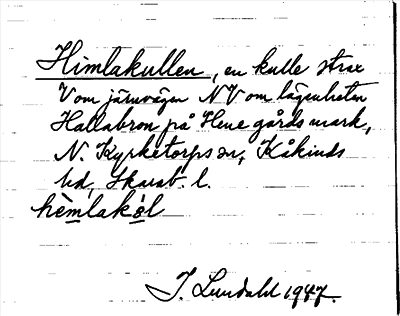 Himlakullen, en kulle strax
V om järnvägen NV om lägenheten
Hallabron på Hene gårds mark,
N. Kyrketorps sn, Kåkinds
hd, Skarab. l.
hèmlakòl
I. Lundahl 1947.